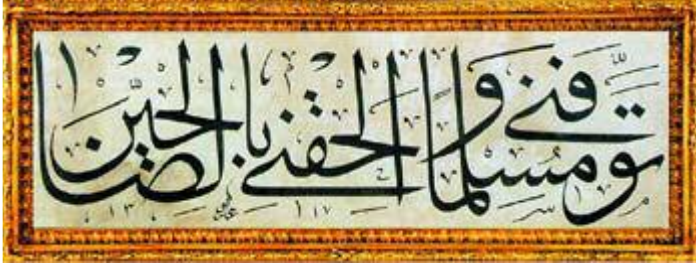 توفني مسلما والحقني بالصالحين